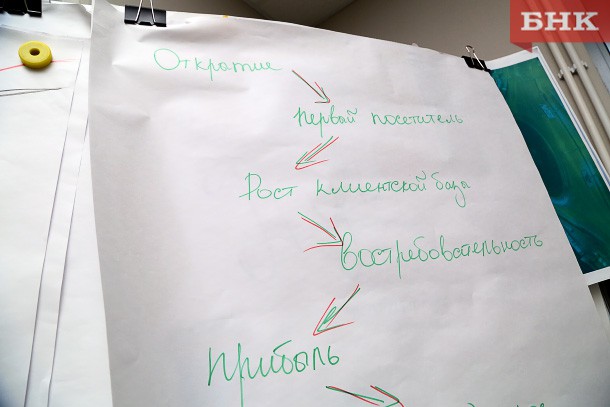 БНК
Открытие
Первый посетитель
Рост клиентской база
Востребовательность
Прибыль